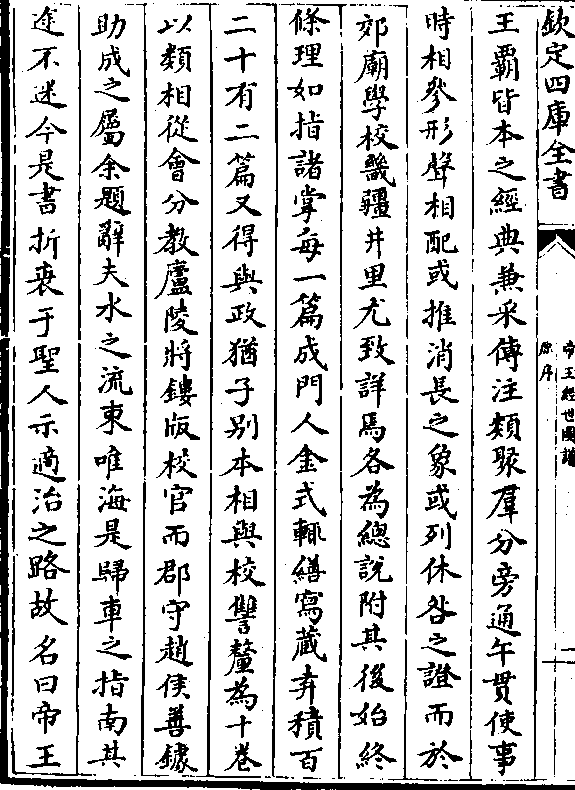 欽定四庫全書
帝王經世圖譜
原序
王霸皆本之經典兼采傳注類聚羣分旁通午貫使事
時相參形聲相配或推消長之象或列休咎之證而於
郊廟學校畿疆井里尤致詳焉各為總說附其後始終
條理如指諸掌每一篇成門人金式輒繕寫藏弆積百
二十有二篇又得與政猶子别本相與校讐釐為十卷
以類相從會分教廬陵將鏤版校官而郡守趙侯善鐻
助成之屬余題辭夫水之流東唯海是歸車之指南其
途不迷今是書折衷于聖人示適治之路故名曰帝王